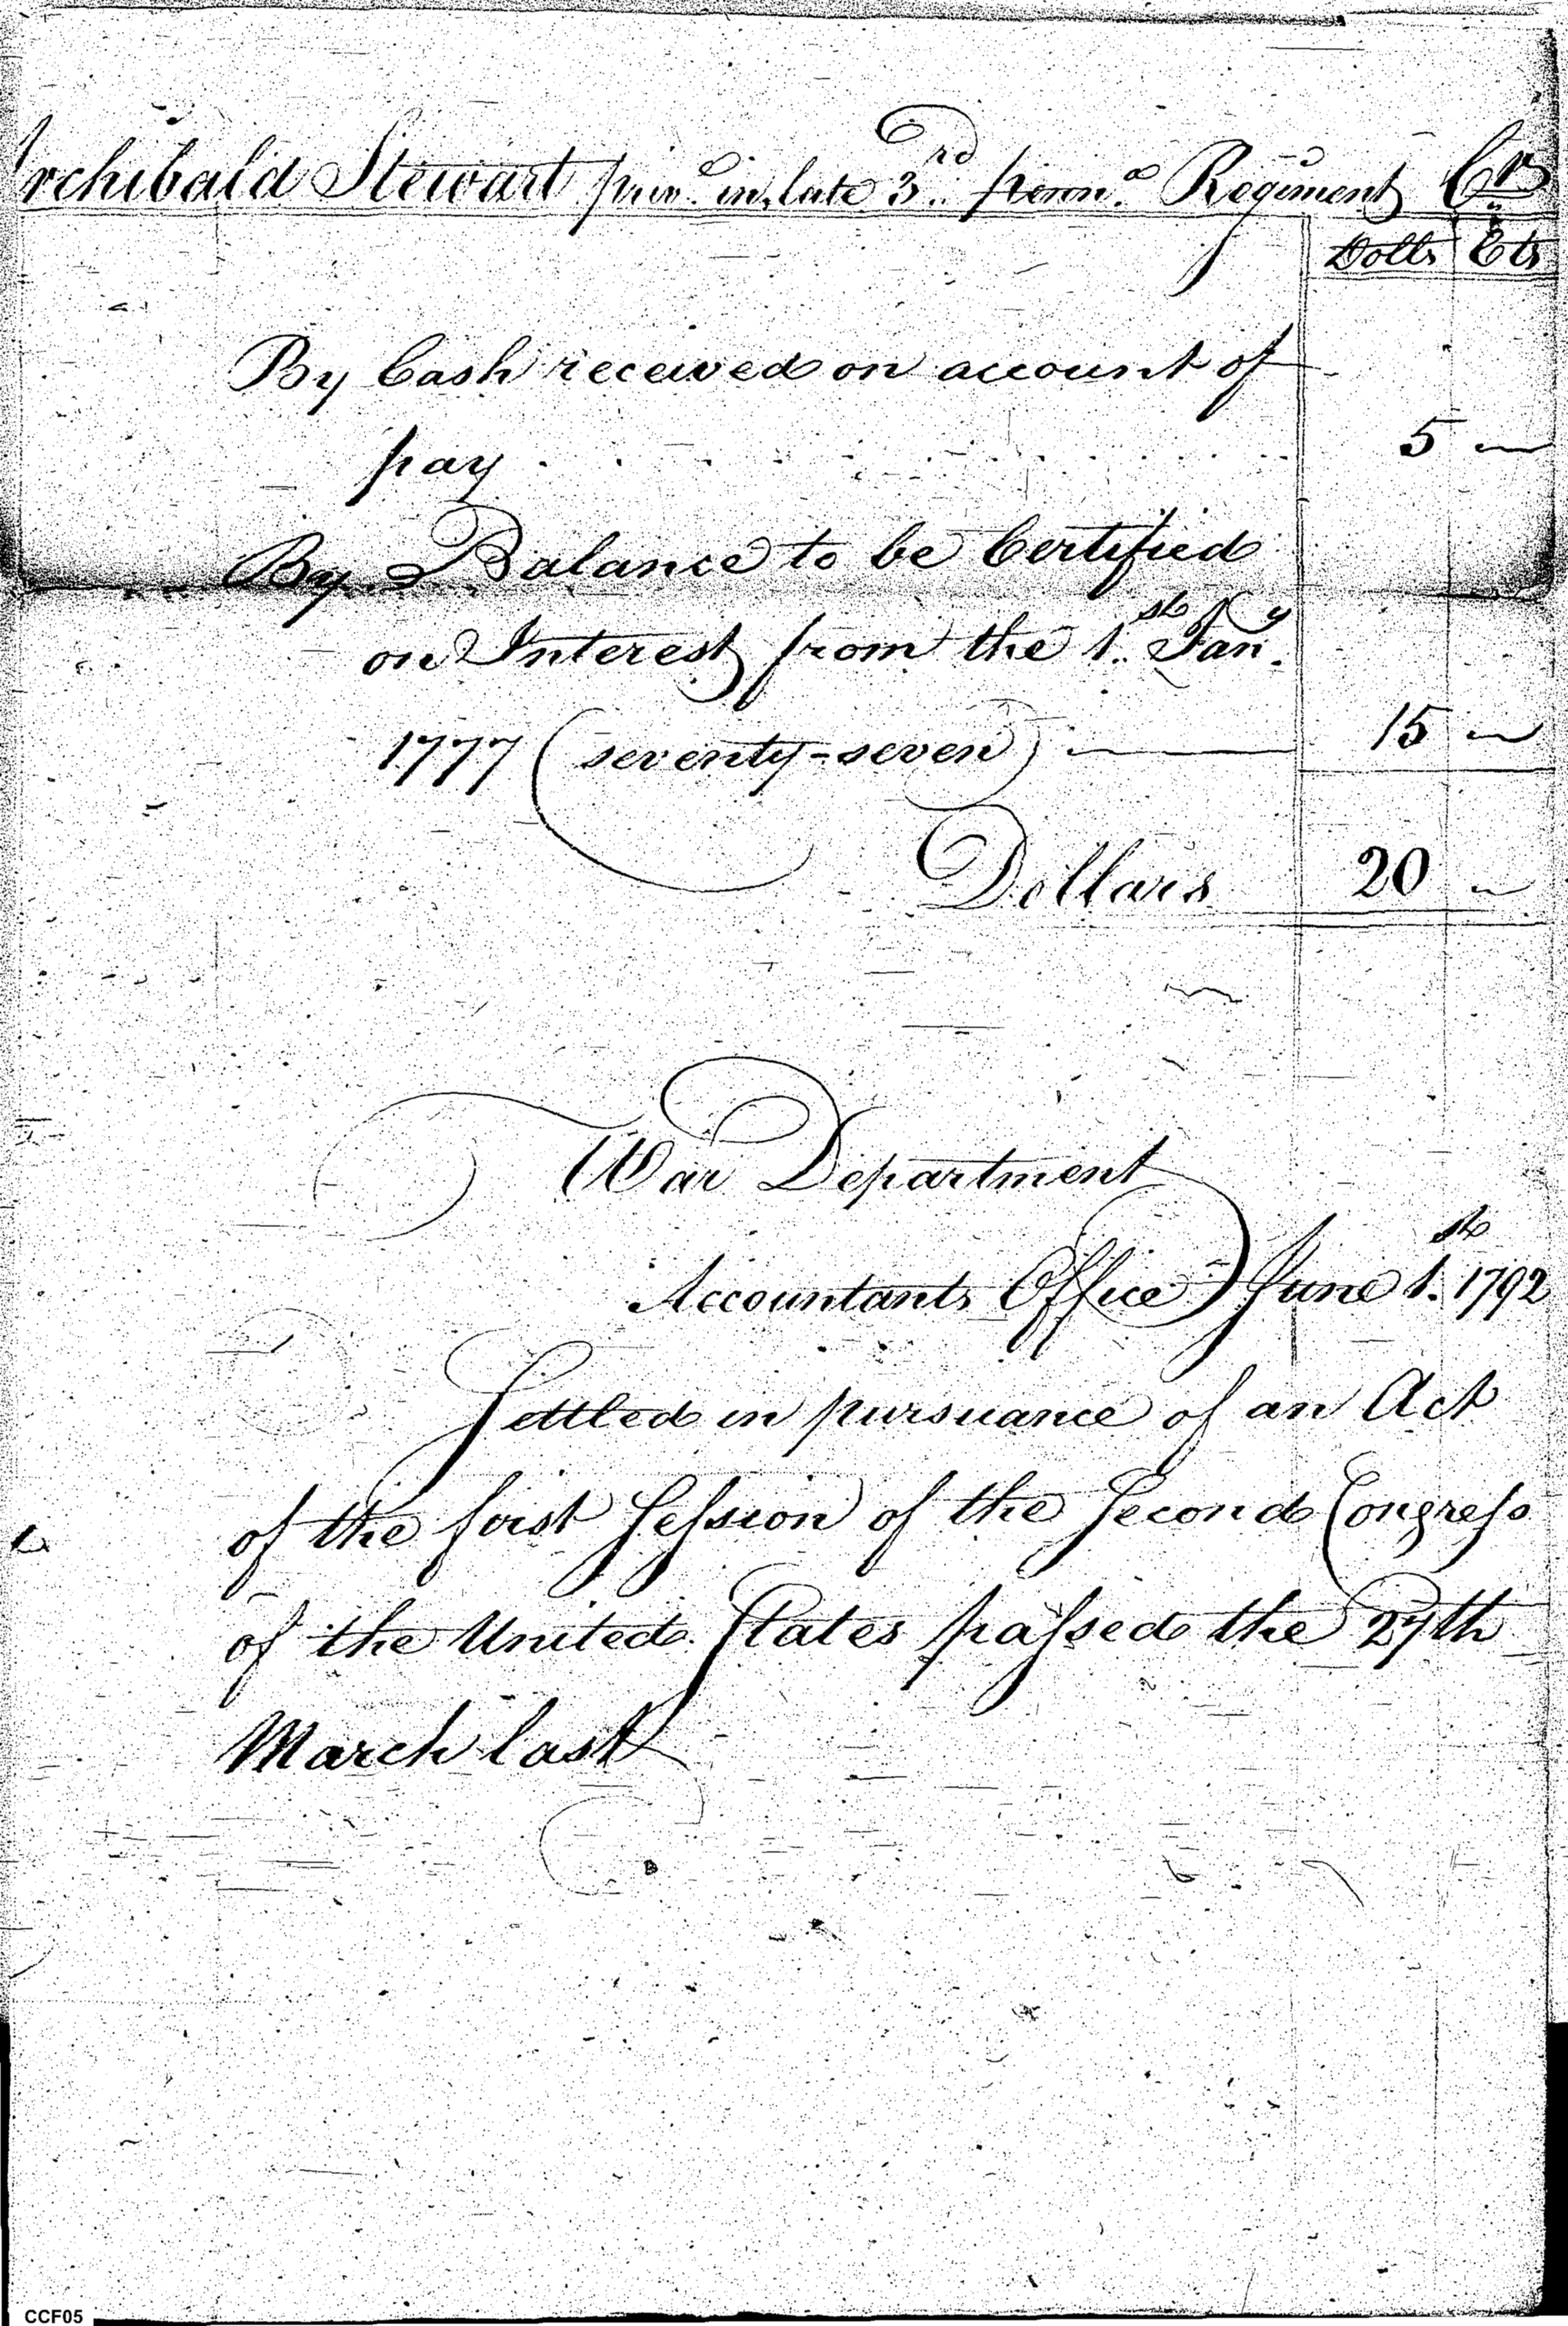 Archibald Stewart priv.e in late 3.rd penn.a Regiment Cr
Dolls Cts
By Cash received on account of
pay . . . . . . . . . . 5 —
By Balance to be Certified
on Interest from the 1.st Jan.y
1777 (seventy-seven) — 15 —
Dollars 20 —
War Department
Accountants Office June 1.st 1792
Settled in pursuance of an Act
of the first Seſsion of the Second Congreſs
of the United States paſsed the 27th
March last
CCF05